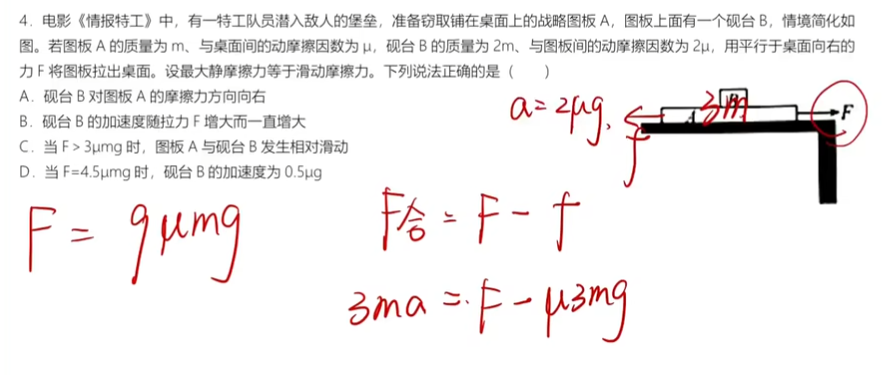 4. 电影《情报特工》中，有一特工队员潜入敌人的堡垒，准备窃取铺在桌面上的战略图板 A，图板上面有一个砚台 B，情境简化如
图。若图板 A 的质量为 m、与桌面间的动摩擦因数为 μ，砚台 B 的质量为 2m、与图板间的动摩擦因数为 2μ，用平行于桌面向右的
力 F 将图板拉出桌面。设最大静摩擦力等于滑动摩擦力。下列说法正确的是（　　）
A. 砚台 B 对图板 A 的摩擦力方向向右
B. 砚台 B 的加速度随拉力 F 增大而一直增大
C. 当 F > 3μmg 时，图板 A 与砚台 B 发生相对滑动
D. 当 F=4.5μmg 时，砚台 B 的加速度为 0.5μg
a = 2μg.
B
A
3m
F
f
F = 9μmg
F合 = F - f
3ma = F - μ3mg